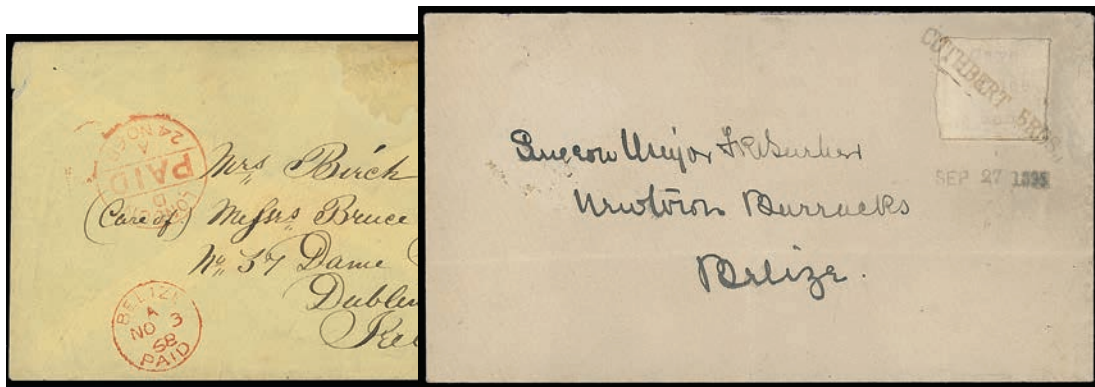 PAID
24 NO
Mrs Birch
(Care of) Messrs Bruce
No 37 Dame
Dublin
BELIZE
A
NO 3
58
PAID
CUTHBERT BROS.
SEP 27 1895
Surgeon Major
Newtown Barracks
Belize.